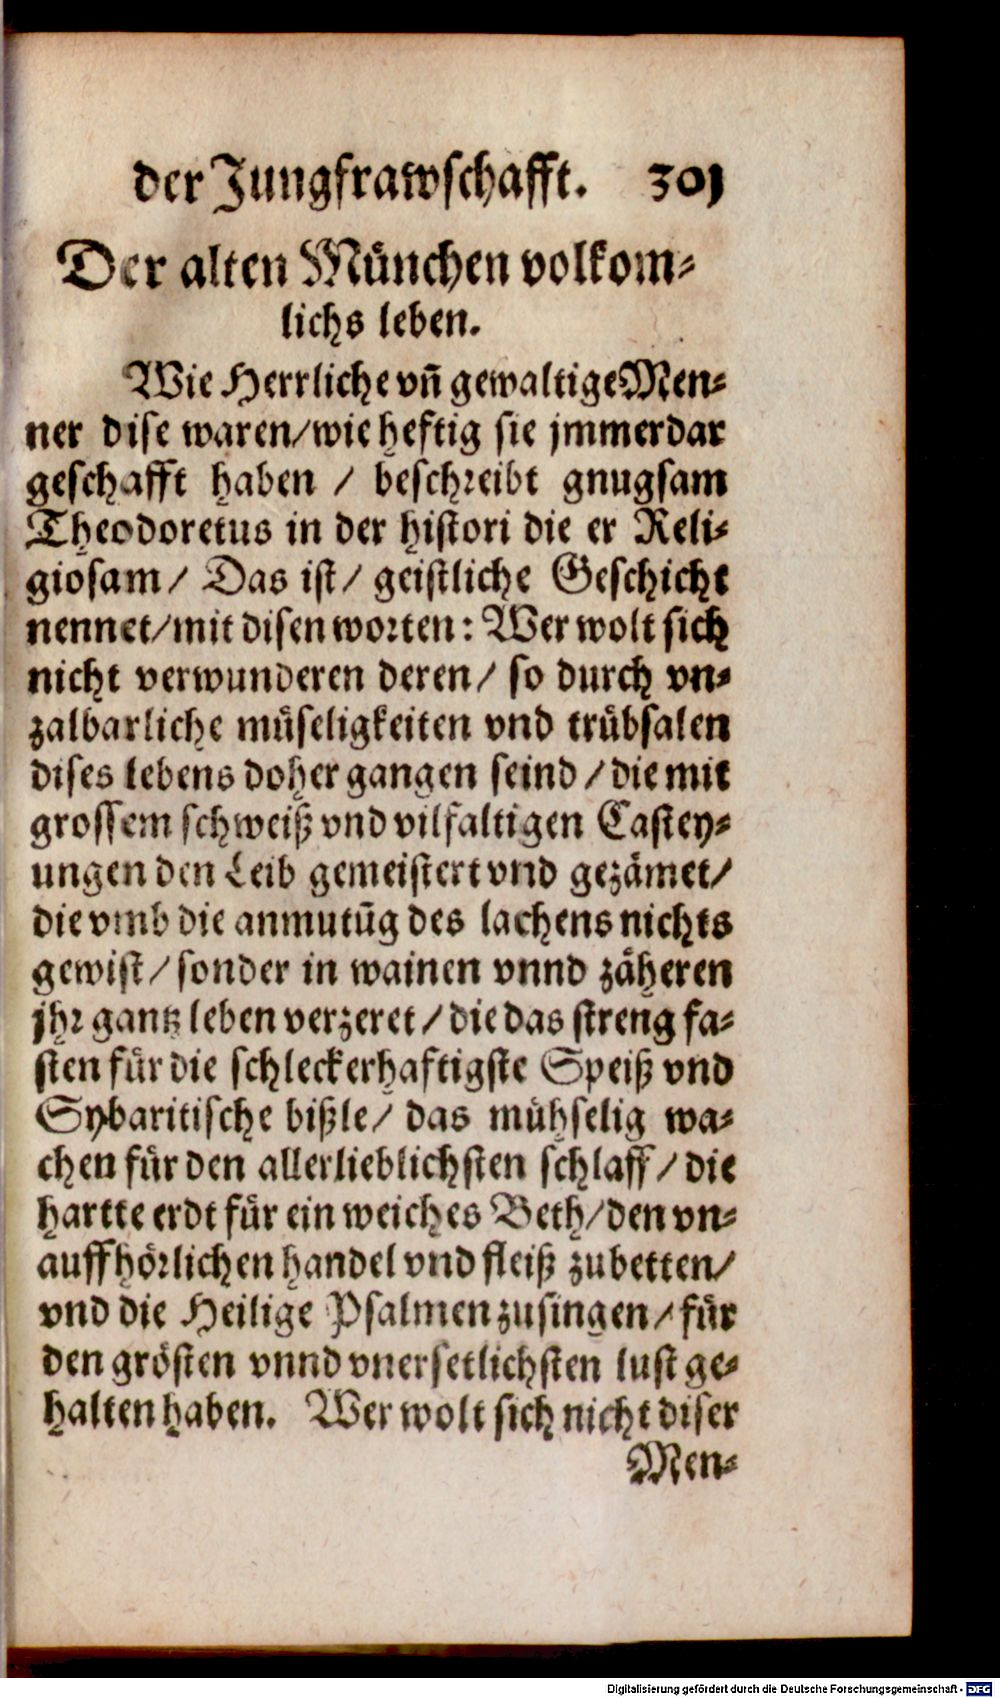 der Jungfrawschafft. 301
Der alten München volkom-
lichs leben.
Wie Herrliche vñ gewaltige Men-
ner dise waren/wie heftig sie jmmerdar
geschafft haben / beschreibt gnugsam
Theodoretus in der histori die er Reli-
giosam/ Das ist/ geistliche Geschicht
nennet/mit disen worten: Wer wolt sich
nicht verwunderen deren/ so durch vn-
zalbarliche müseligkeiten vnd trübsalen
dises lebens doher gangen seind /die mit
grossem schweiß vnd vilfaltigen Castey-
ungen den Leib gemeistert vnd gezämet/
die vmb die anmutūg des lachens nichts
gewist/sonder in wainen vnnd zäheren
jhr gantz leben verzeret /die das streng fa-
sten für die schleckerhaftigste Speiß vnd
Sybaritische bißle/ das mühselig wa-
chen für den allerlieblichsten schlaff /die
hartte erdt für ein weiches Beth/den vn-
auffhörlichen handel vnd fleiß zubetten/
vnd die Heilige Psalmen zusingen/für
den grösten vnnd vnersetlichsten lust ge-
halten haben. Wer wolt sich nicht diser
Men-
Digitalisierung gefördert durch die Deutsche Forschungsgemeinschaft - DFG